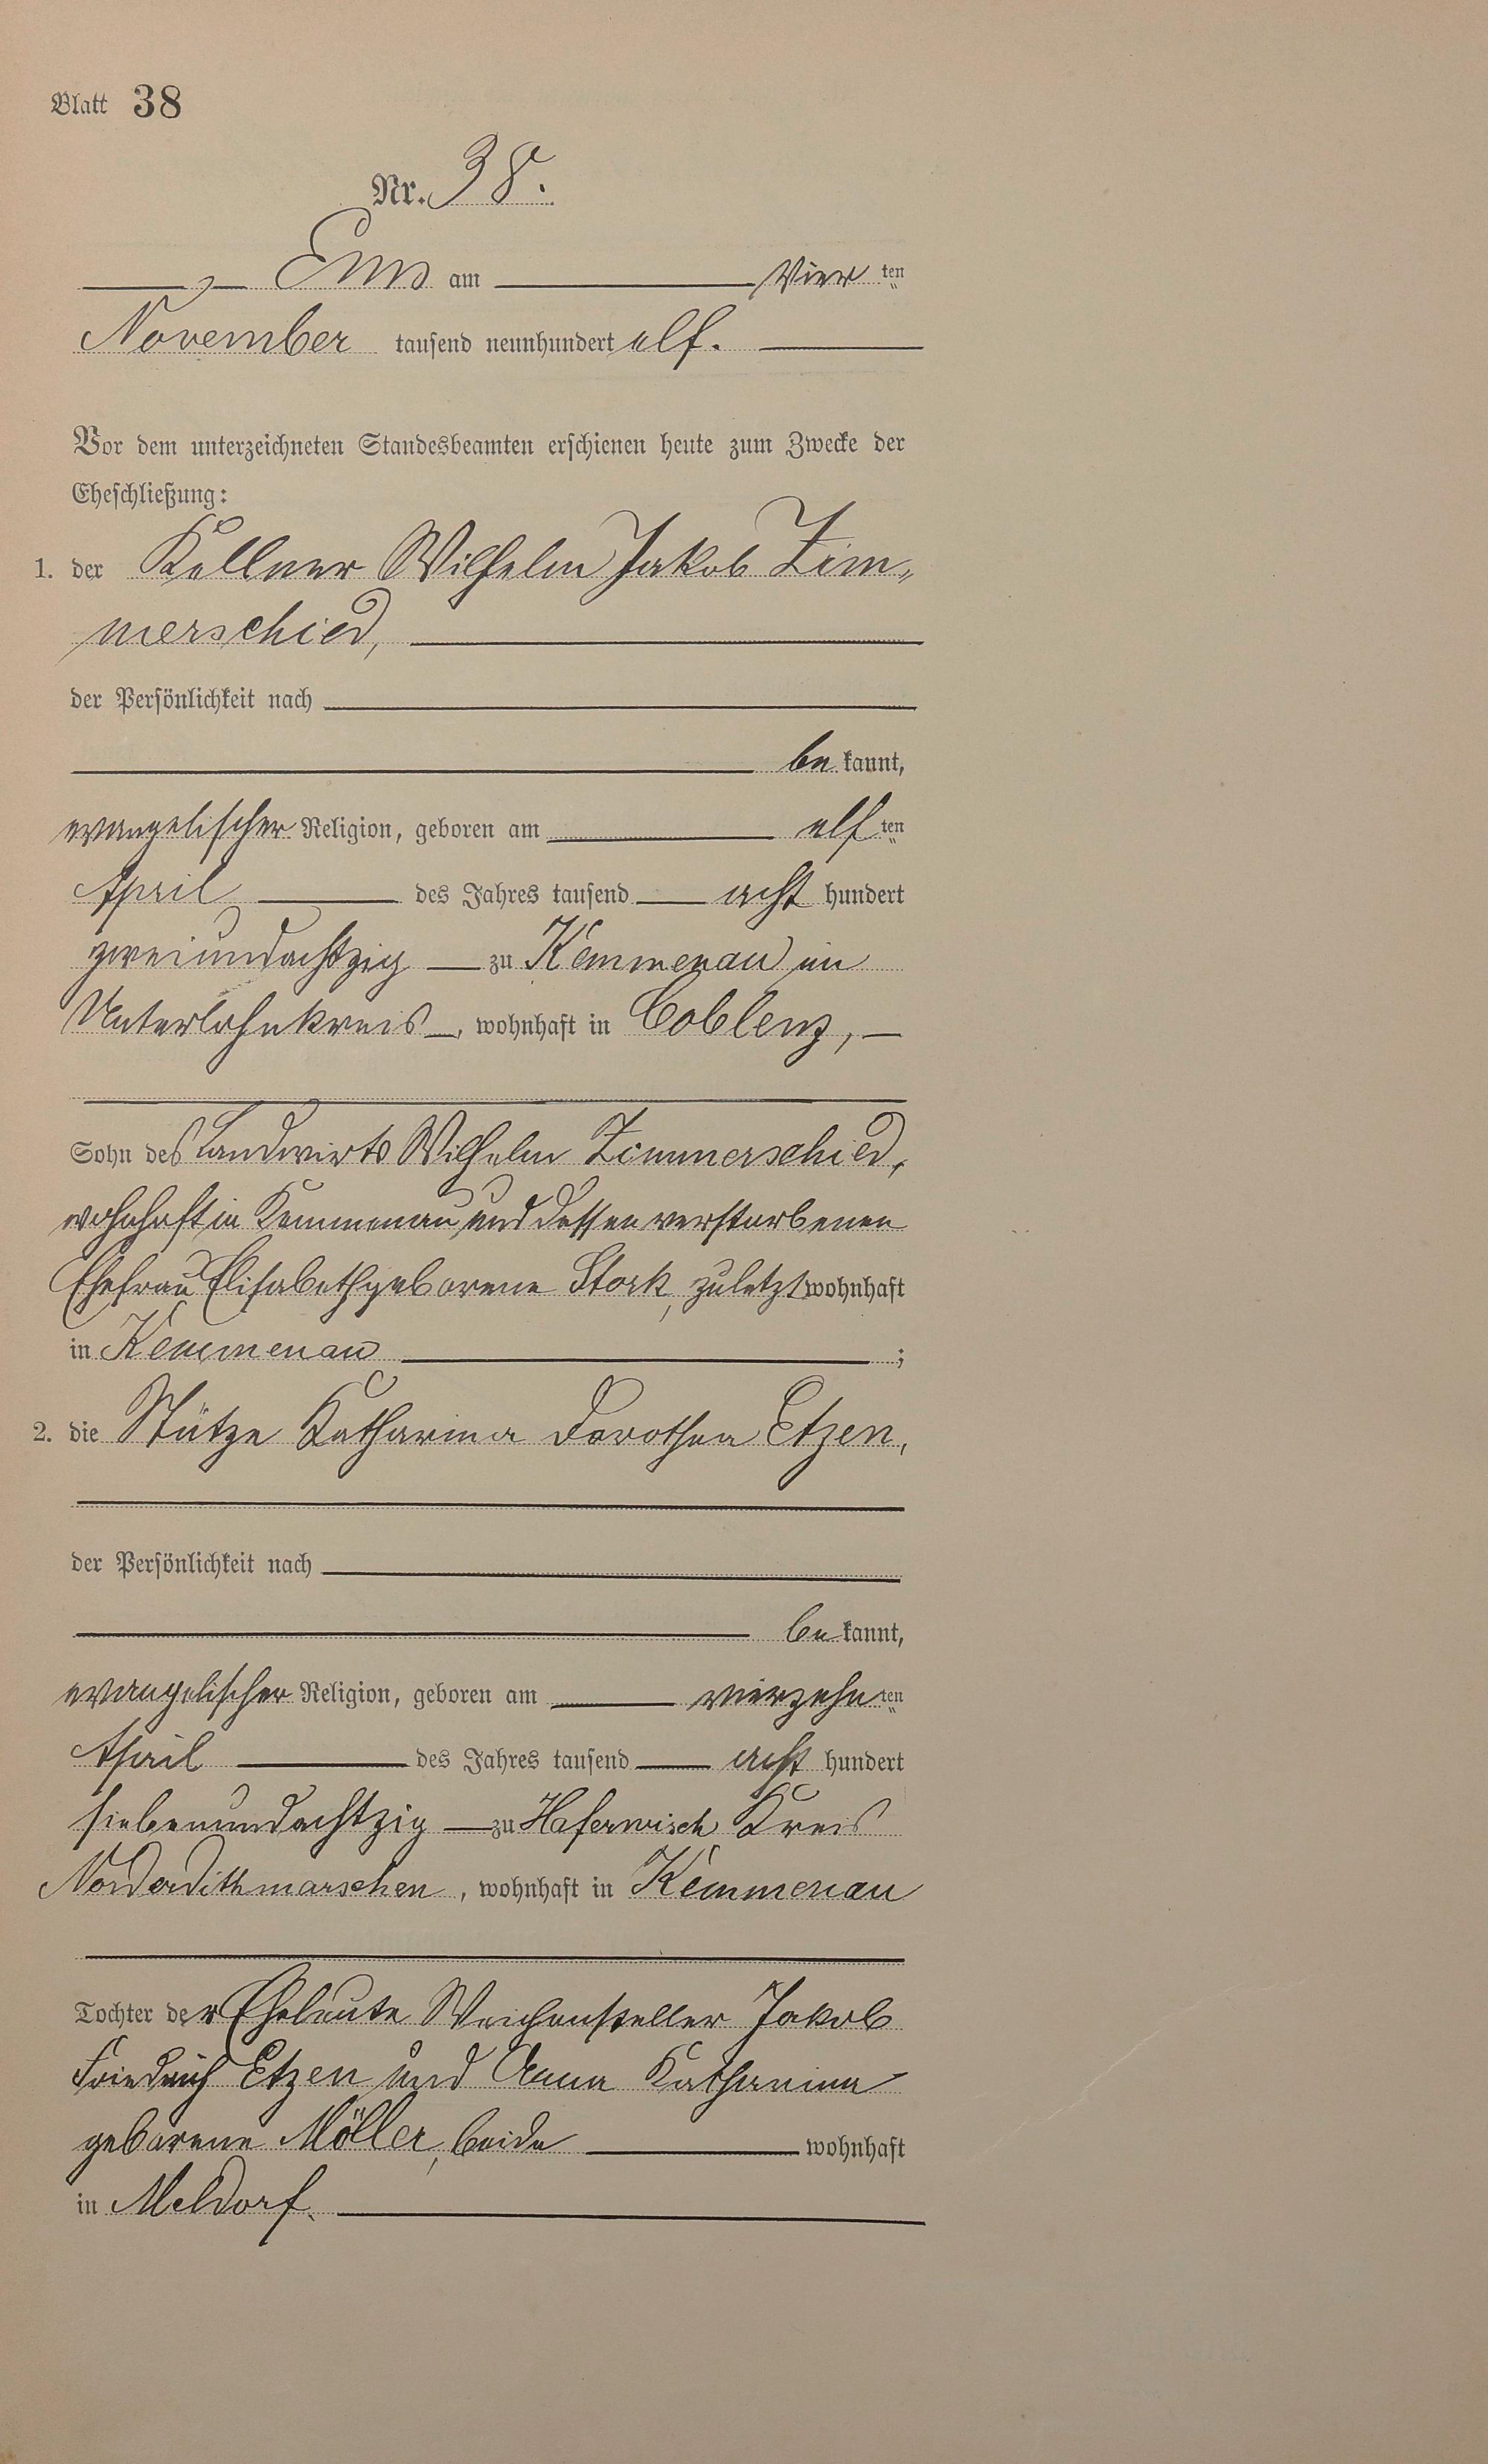 Blatt 38
Nr. 38.
Ems am vier ten
November tausend neunhundert elf.
Vor dem unterzeichneten Standesbeamten erschienen heute zum Zwecke der
Eheschließung:
1. der Kellner Wilhelm Jakob Zim„
merschied,
der Persönlichkeit nach
be kannt,
evangelischer Religion, geboren am elf ten
April des Jahres tausend acht hundert
zweiundachtzig zu Kemmenau im
Unterlahnkreis, wohnhaft in Coblenz,
Sohn des Landwirts Wilhelm Zimmerschied,
wohnhaft in Kemmenau und dessen verstorbenen
Ehefrau Elisabeth geborene Stork, zuletzt wohnhaft
in Kemmenau ;
2. die Stütze Katharina Dorothea Etzen,
der Persönlichkeit nach
be kannt,
evangelischer Religion, geboren am vierzehn ten
April des Jahres tausend acht hundert
siebenundachtzig zu Haferwisch Kreis
Norderdithmarschen, wohnhaft in Kemmenau
Tochter der Eheleute Weichensteller Jakob
Friedrich Etzen und Anna Katharina
geborene Möller, beide wohnhaft
in Meldorf.